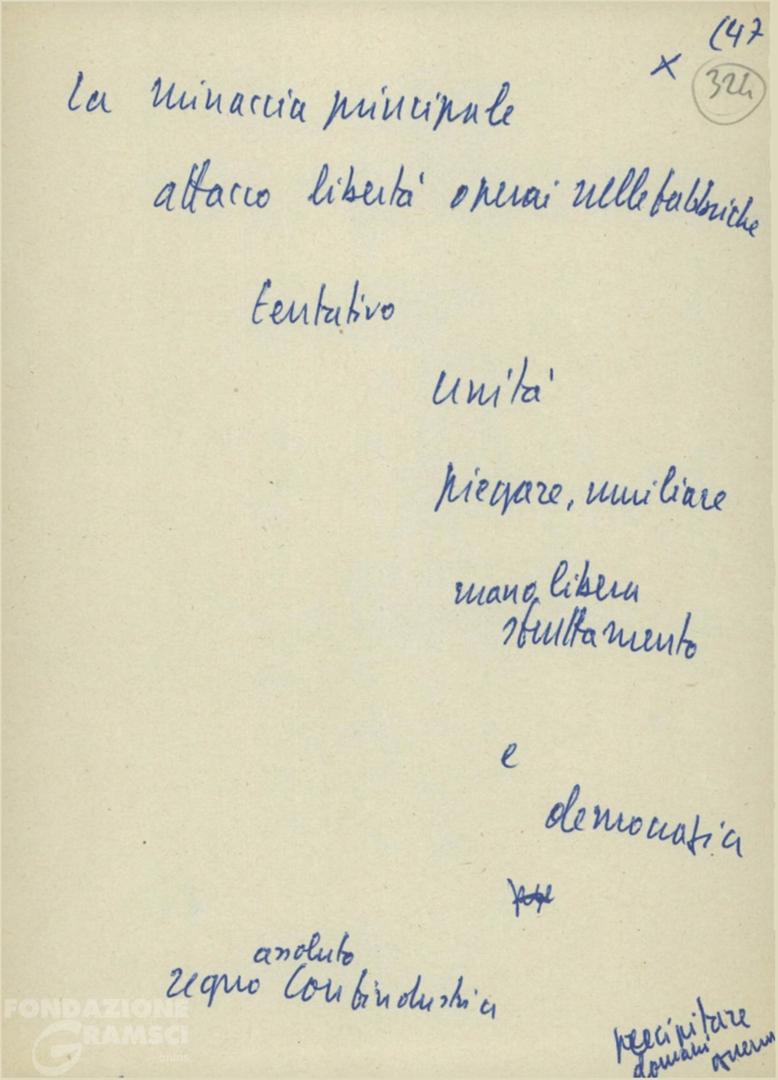 (47
x 324
la minaccia principale
attacco libertà operai nelle fabbriche
tentativo
unità
piegare, umiliare
mano libera
sfruttamento
e
democrazia
assoluto
regno Confindustria
precipitare
domani guerra
FONDAZIONE
GRAMSCI
onlus